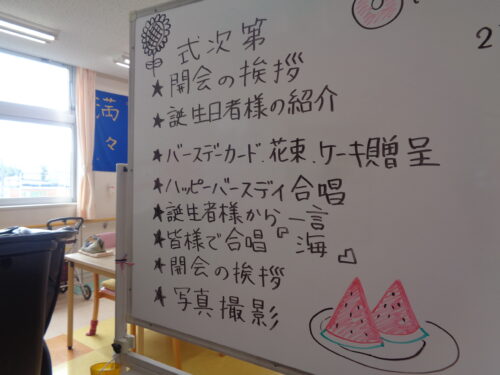 式次第
★開会の挨拶
★誕生日者様の紹介
★バースデーカード、花束、ケーキ贈呈
★ハッピーバースディ合唱
★誕生者様から一言
★皆様で合唱『海』
★開会の挨拶
★写真撮影
満々
2